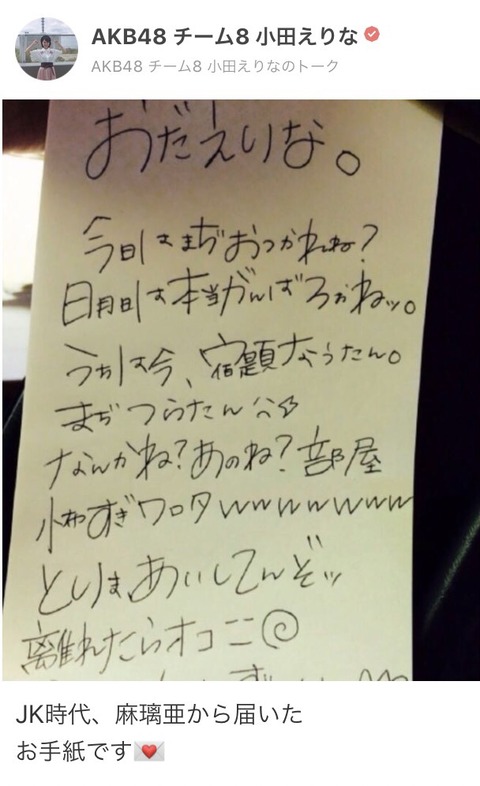 AKB48 チーム8 小田えりな
AKB48 チーム8 小田えりなのトーク
おだえりな。
今日はまぢおつかれね?
明日は本当がんばろぉねッ。
うちは今、宿題なうたん。
まぢつらたん
なんかね?あのね?部屋
怖すぎワロタwwwwwww
とりま、あいしてんぞッ
離れたらオコ
JK時代、麻璃亜から届いた
お手紙です💌